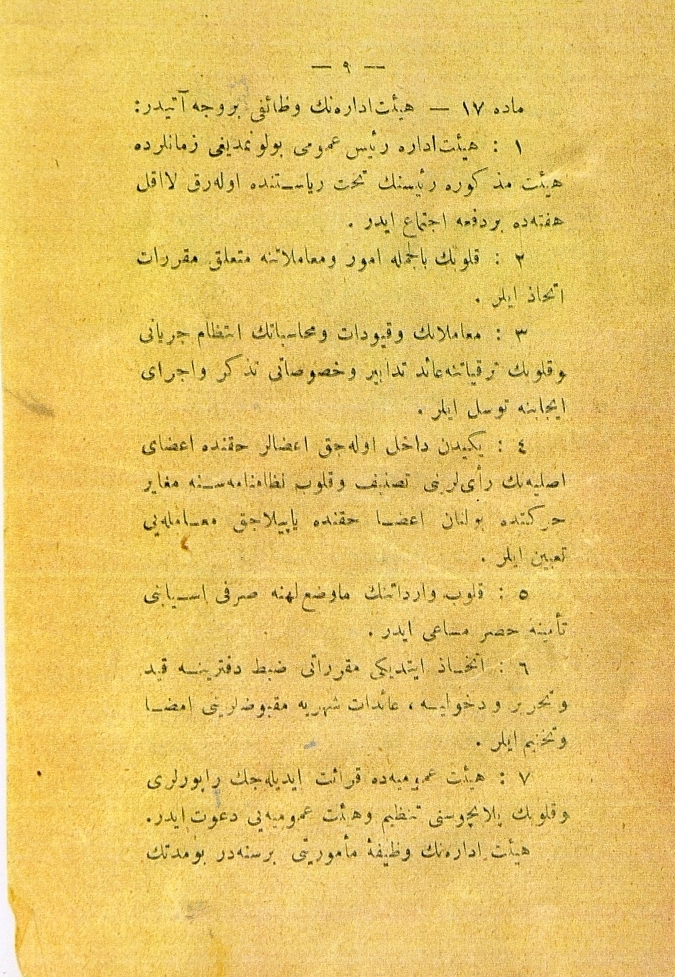 — ٩ —
ماده ١٧ — هيئت‌اداره‌نك وظائفى بروجه آتيدر:
١ : هيئت‌اداره رئيس عمومى بولونمديغى زمانلرده
هيئت مذكوره رئيسنك تحت رياستنده اوله‌رق لااقل
هفته‌ده بردفعه اجتماع ايدر .
٢ : قلوبك بالجمله امور ومعاملاتنه متعلق مقررات
اتخاذ ايلر .
٣ : معاملاتك وقيودات ومحاسباتك انتظام جريانى
وقلوبك ترقياتنه‌عائد تدابير وخصوصاتى تذكر واجراى
ايجابنه توسل ايلر .
٤ : يكيدن داخل اوله‌جق اعضالر حقنده اعضاى
اصليه‌نك رأى‌لرينى تصنيف وقلوب نظامنامه‌سنه مغاير
حركتده بولنان اعضا حقنده ياپيلاجق معامله‌يى
تعيين ايلر .
٥ : قلوب وارداتنك ماوضع‌لهنه صرفى اسبابنى
تأمينه حصر مساعى ايدر .
٦ : اتخاذ ايتديكى مقرراتى ضبط دفترينه قيد
وتحرير ودخوليه ، عائدات شهريه مقبوضلرينى امضا
وتختيم ايلر .
٧ : هيئت عموميه‌ده قرائت ايديله‌جك راپورلرى
وقلوبك پلانچوسنى تنظيم وهيئت عموميه‌يى دعوت ايدر.
هيئت اداره‌نك وظيفهٔ مأموريتى برسنه‌در بومدتك